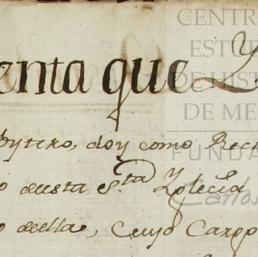 CENTR
ESTU
DE HIST
DE ME
FUNDA
Carlos
enta que Y
bytero, doy como Rect
o desta S.ta Yglecia
o della, Cuyo Cargo